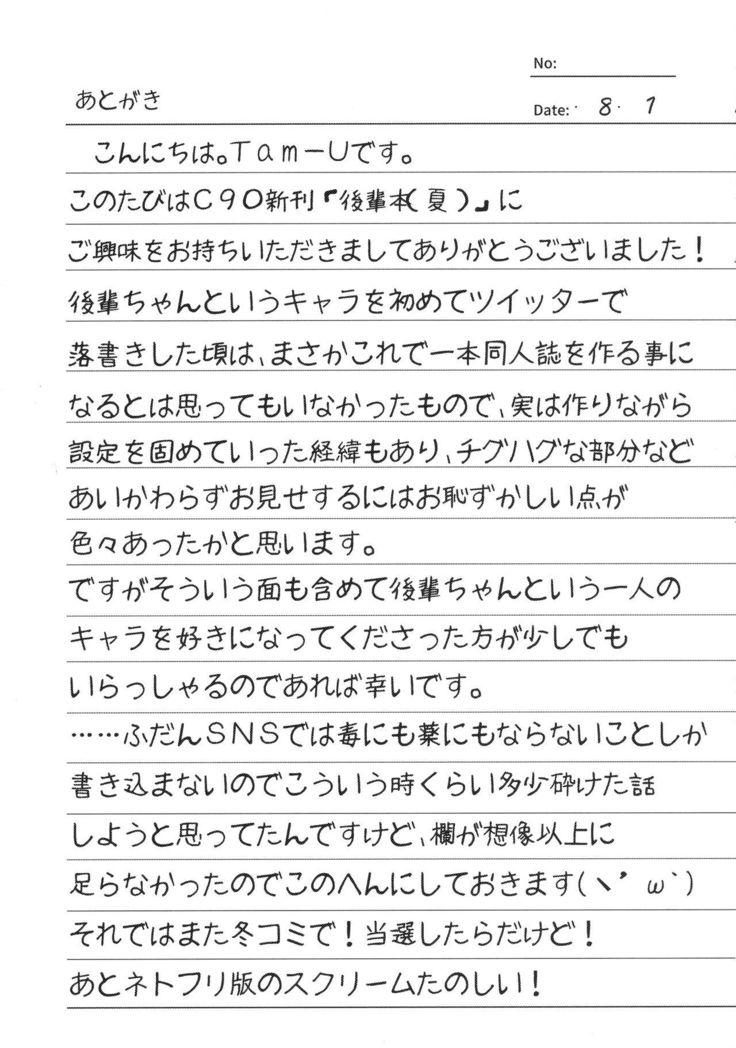 No:
あとがき
Date: 8・1
こんにちは。Tam－Uです。
このたびはC90新刊「後輩本(夏)」に
ご興味をお持ちいただきましてありがとうございました！
後輩ちゃんというキャラを初めてツイッターで
落書きした頃は、まさかこれで一本同人誌を作る事に
なるとは思ってもいなかったもので、実は作りながら
設定を固めていった経緯もあり、チグハグな部分など
あいかわらずお見せするにはお恥ずかしい点が
色々あったかと思います。
ですがそういう面も含めて後輩ちゃんという一人の
キャラを好きになってくださった方が少しでも
いらっしゃるのであれば幸いです。
……ふだんSNSでは毒にも薬にもならないことしか
書き込まないのでこういう時くらい多少砕けた話
しようと思ってたんですけど、欄が想像以上に
足らなかったのでこのへんにしておきます(ヽ’ω`)
それではまた冬コミで！当選したらだけど！
あとネトフリ版のスクリームたのしい！